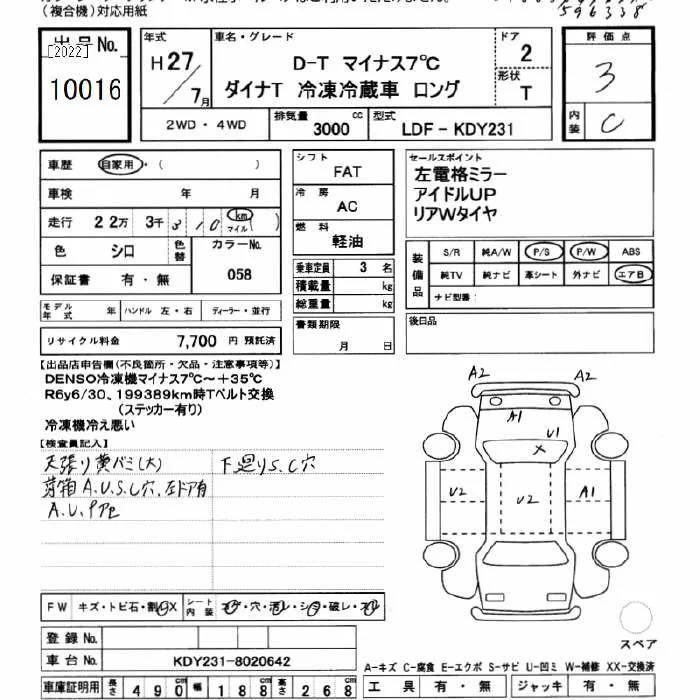 （複合機）対応用紙
596338
出品No.
[2022]
10016
年式
H27/7月
車名・グレード
D-T マイナス7℃
ダイナT 冷凍冷蔵車 ロング
ドア
2
形状
T
評価点
3
内装
C
2WD・4WD
排気量 3000 cc
型式 LDF-KDY231
車歴 自家用・（　）
車検 年 月
走行 22万 3千 310 km マイル（　）
色 シロ 色替
カラーNo. 058
保証書 有・無
シフト
FAT
冷房
AC
燃料
軽油
乗車定員 3 名
積載量 kg
総重量 kg
書類期限
月 日
セールスポイント
左電格ミラー
アイドルUP
リアWタイヤ
装備品
S/R 純A/W P/S P/W ABS
純TV 純ナビ 革シート 外ナビ エアB
ナビ型番：
後日品
モデル年式 年 ハンドル 左・右 ディーラー・並行
リサイクル料金 7,700 円 預託済
【出品店申告欄（不良箇所・欠品・注意事項等）】
DENSO冷凍機マイナス7℃～+35℃
R6y6/30、199389km時Tベルト交換
（ステッカー有り）
冷凍機冷え悪い
【検査員記入】
天張り黄バミ(大)
下廻りS.C穴
A.U.S.C穴、左ドア有
A2
A2
A1
U1
X
U2
U2
A1
FW キズ・トビ石・割・X
シート内装 コゲ・穴・汚レ・シミ・破レ・スレ
登録 No.
車台 No. KDY231-8020642
車庫証明用 長さ 490 幅 188 高さ 268
スペア
A-キズ C-腐食 E-エクボ S-サビ U-凹ミ W-補修 XX-交換済
工具 有・無 ジャッキ 有・無